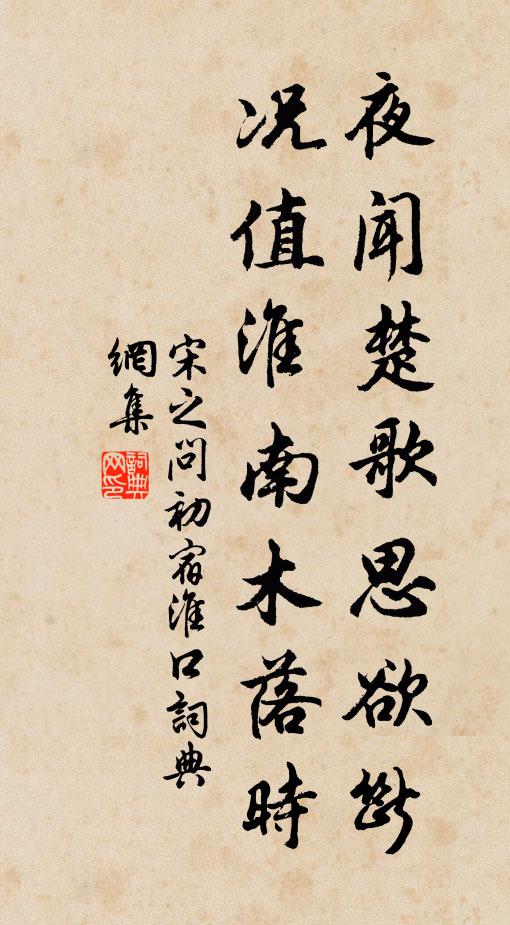 夜闻楚歌思欲断
况值淮南木落時
宋之问初宿淮口詞典
網集
詞典
网印